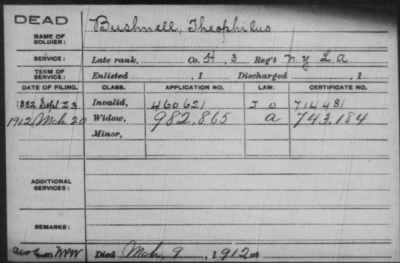 DEAD
NAME OF SOLDIER: Bushnell, Theophilus
SERVICE: Late rank, Co. H, 3 Reg't N Y L A
TERM OF SERVICE: Enlisted , 1 Discharged , 1
DATE OF FILING. CLASS. APPLICATION NO. LAW. CERTIFICATE NO.
1882 Sept 23 Invalid, 460621 J O 714481
1912, Mch 20 Widow, 982.865 a 743.184
Minor,
ADDITIONAL SERVICES:
REMARKS:
Died Mch, 9, 1912 at